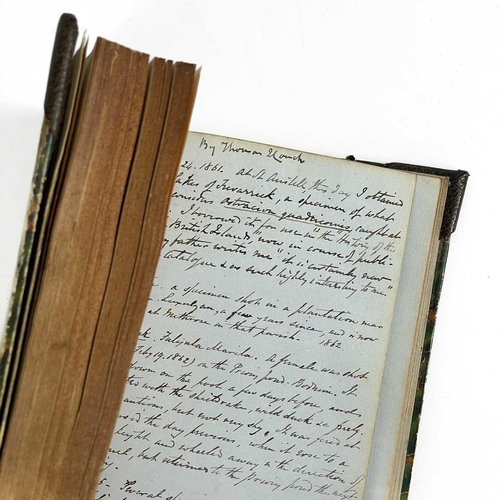 By Thomas Couch
24. 1861. At St. Austell, this day I obtained
Lakes of Trevarrick, a specimen of what
considers Ostracion quadricornis, caught at
I borrowed it for use in "the history of the
British Islands" now in course of publi-
my father writes me "it is certainly new
Catalogue & as such highly interesting to me."
: a specimen shot in a plantation near
a few years since, and is now
at in that parish. 1862
Fuligula Marila. a female was shot
Feby 19. 1862) on the Priory pond. Bodmin. It
down on the pool a few days before and
with the sheldrake, wild duck &c. freely,
cautious, but not very shy. It was fired at
the day previous, when it rose to a
height and wheeled away in the direction of
, but returned to the Priory pond the night